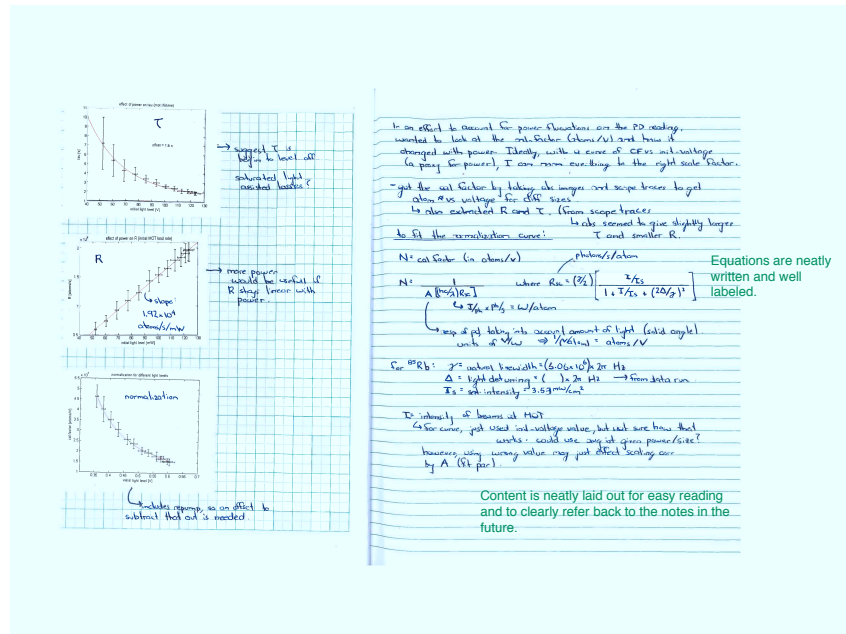 effect of power on tau (mot lifetime)
τ
initial light level [V]
→ suggest τ is
begin to level off
saturated light
assisted losses?
effect of power on R (initial MOT load rate)
R
slope
1.92×10⁴
atoms/s/mW
initial light level [mW]
→ more power
would be useful if
R stays linear with
power.
normalization for different light levels
normalization
cal factor [atoms/V]
initial light level [V]
includes repump, so an offset to
subtract that out is needed.
In an effort to account for power fluctuations on the PD reading,
wanted to look at the cal. factor (atoms/V) and how it
changed with power. Ideally, with a curve of CF vs init-voltage
(a proxy for power), I can norm everything to the right scale factor.
- got the cal factor by taking abs images and scope traces to get
atom # vs voltage for diff sizes
↳ also extracted R and τ. (from scope traces
↳ abs seemed to give slightly larger
τ and smaller R.
to fit the normalization curve:
N = cal factor (in atoms/V)
photons/s/atom
N = 1 / A[(hc/λ)Rsc] where Rsc = (γ/2) [ I/Is / 1 + I/Is + (2Δ/γ)² ]
= W/atom
↳ resp of pd taking into account amount of light (solid angle).
units of V/W ⇒ = atoms/V
for ⁸⁵Rb: γ = natural linewidth = (6.06×10⁶) × 2π Hz
Δ = light detuning = ( ) × 2π Hz → from data run
Is = sat. intensity = 3.59 mW/cm²
I = intensity of beams at MOT
↳ For curve, just used init-voltage value, but not sure how that
works. could use avg int given power/size?
however, using wrong value may just affect scaling
by A (fit par).
Equations are neatly
written and well
labeled.
Content is neatly laid out for easy reading
and to clearly refer back to the notes in the
future.